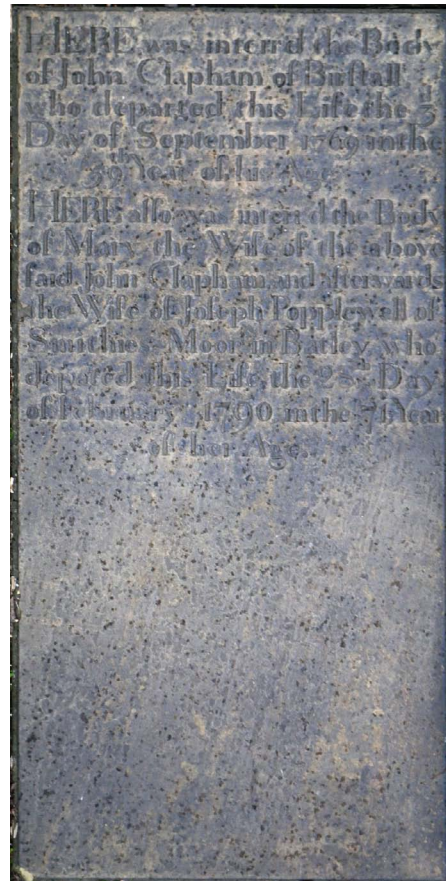 HERE was interr'd the Body
of John Clapham of Burstall
who departed this Life the 3d
Day of September 1769 in the
39th Year of his Age
HERE also was interr'd the Body
of Mary the Wife of the above
said John Clapham and afterwards
the Wife of Joseph Popplewell of
Smithies Moor in Batley who
departed this Life the Day
of February 1790 in the 71 Year
of her Age.